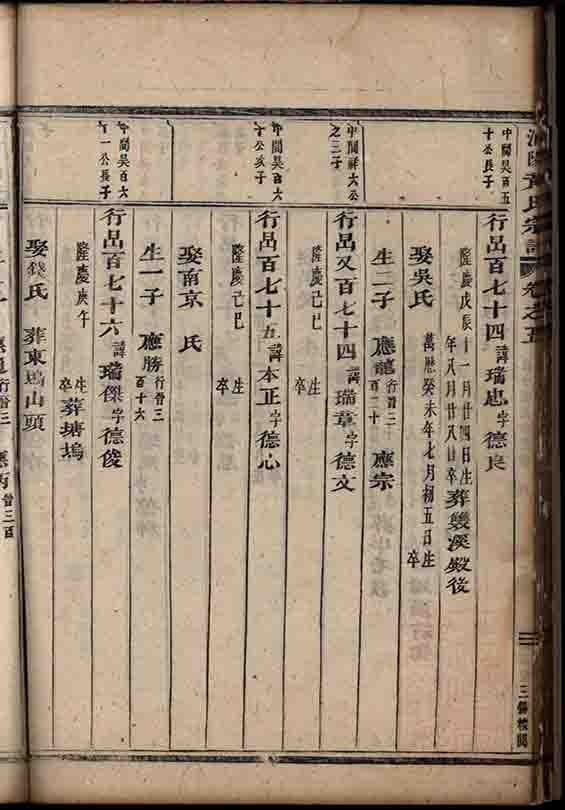 氏宗譜 卷之五
三鄉校閱
中間昊百五
十公長子
行昂百七十四諱瑞忠字德良
隆慶戊辰十一月廿四日生
年八月廿八日卒葬幾溪殿後
娶吳氏 萬歷癸未年七月初五日生
卒
生二子 應龍行晉三百二十 應宗
中間祥大公
之三子
行昂又百七十四諱瑞羣字德文
隆慶己巳 生
卒
中間昊百六
十公次子
行昂百七十五諱本正字德心
隆慶己巳 生
卒
娶南京 氏
生一子 應勝行晉三百十六
中間昊百六
十一公長子
行昂百七十六諱瑞傑字德俊
隆慶庚午 生
卒 葬塘塢
娶錢氏 葬東塢山頭